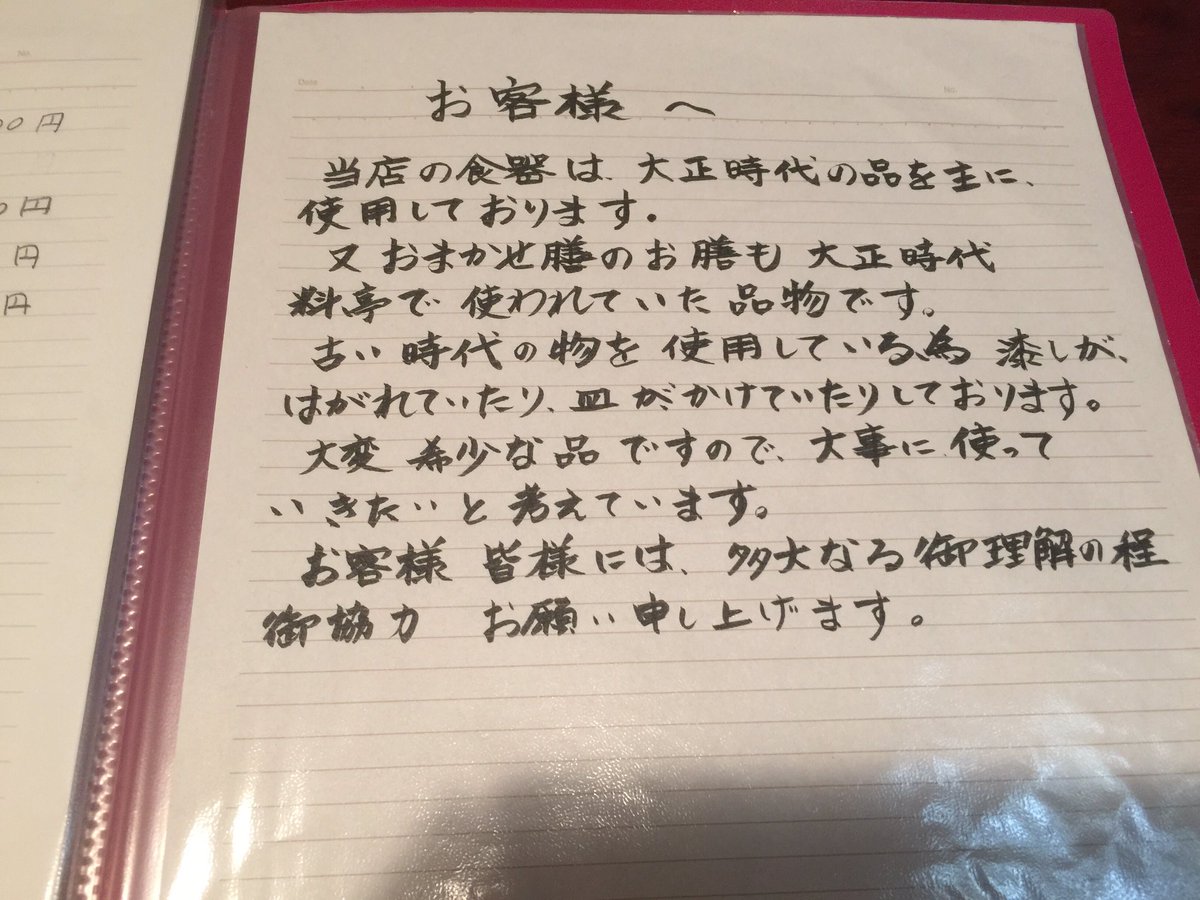 No.
00円
0円
円
円
Date
No.
お客様へ
当店の食器は、大正時代の品を主に、
使用しております。
又おまかせ膳のお膳も大正時代
料亭で使われていた品物です。
古い時代の物を使用している為漆しが、
はがれていたり、皿が、かけていたりしております。
大変希少な品ですので、大事に使って
いきたいと考えています。
お客様皆様には、多大なる御理解の程
御協力 お願い申し上げます。